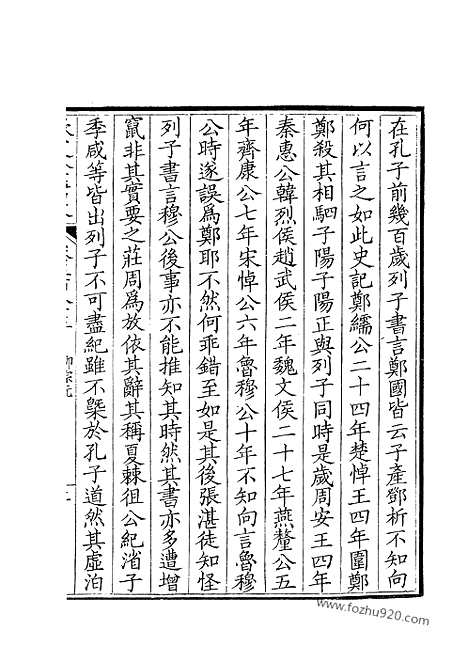 在孔子前幾百歲列子書言鄭國皆云子產鄧析不知向
何以言之如此史記鄭繻公二十四年楚悼王四年圍鄭
鄭殺其相駟子陽子陽正與列子同時是歲周安王四年
秦惠公韓烈侯趙武侯二年魏文侯二十七年燕釐公五
年齊康公七年宋悼公六年魯穆公十年不知向言魯穆
公時遂誤為鄭耶不然何乖錯至如是其後張湛徒知怪
列子書言穆公後事亦不能推知其時然其書亦多遭增
竄非其實要之莊周為放依其辭其稱夏棘狙公紀渻子
季咸等皆出列子不可盡紀雖不槩於孔子道然其虛泊
柳宗元
www.fozhu920.com